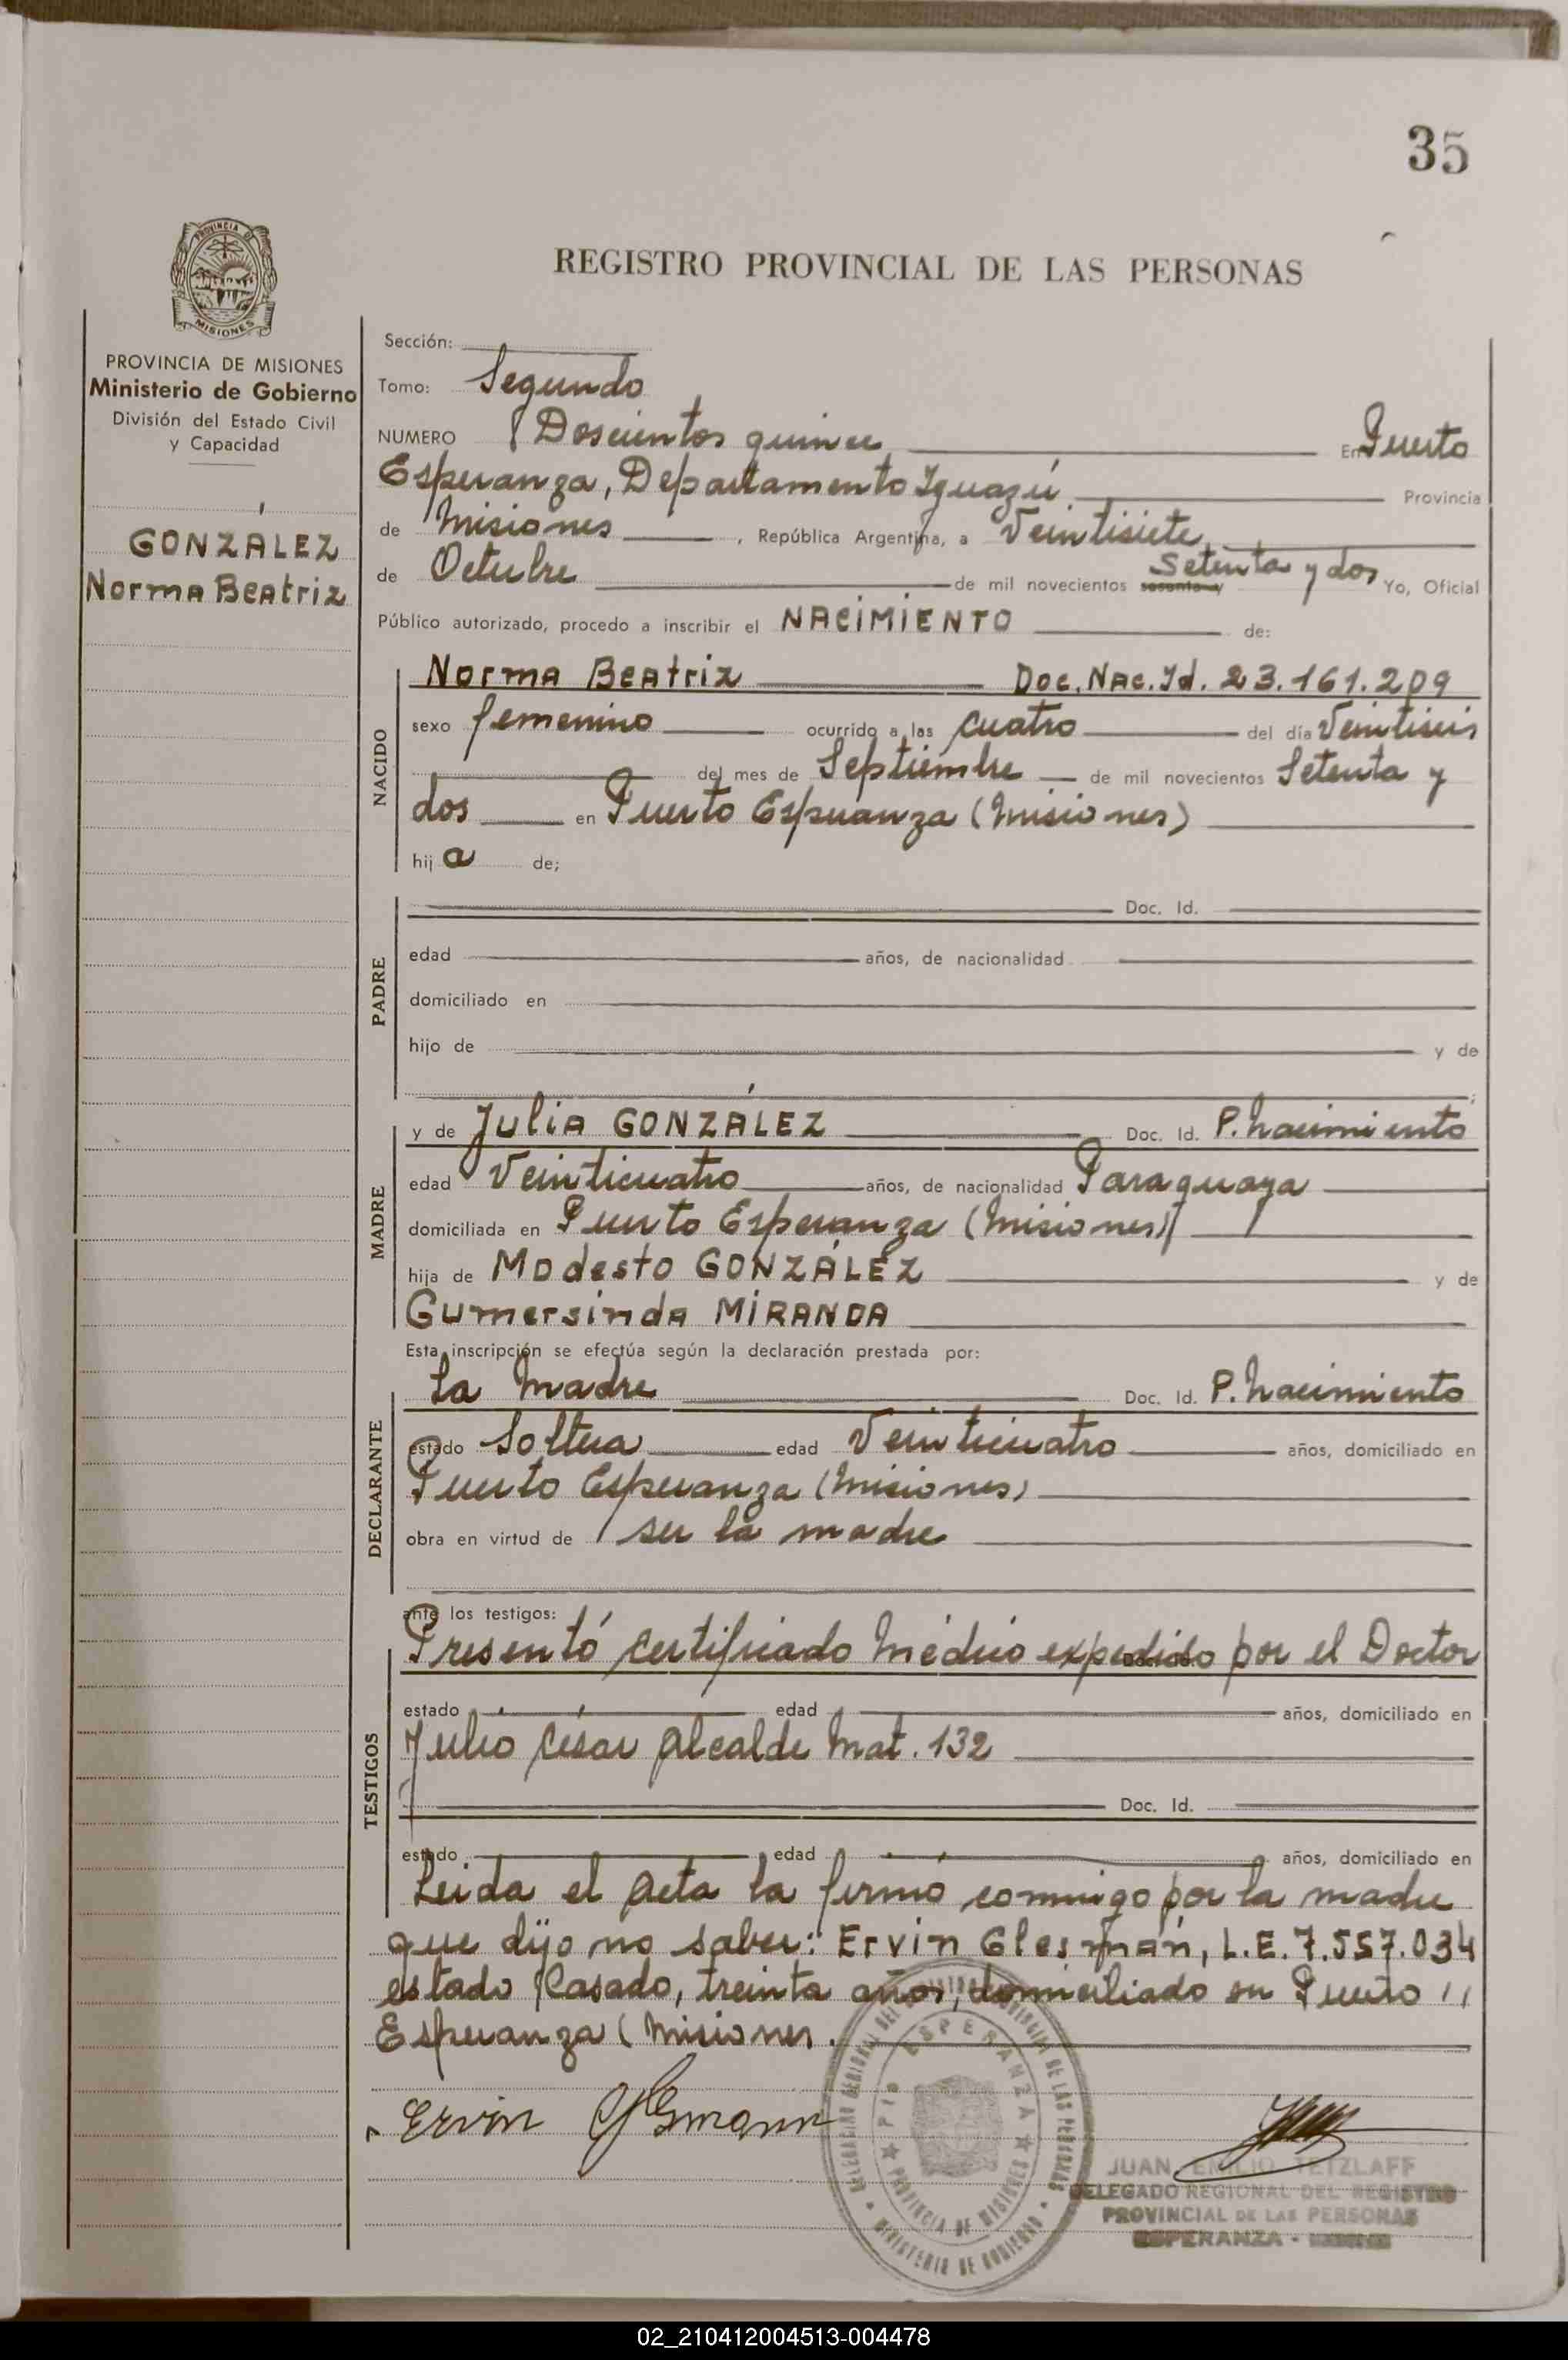 35
REGISTRO PROVINCIAL DE LAS PERSONAS
PROVINCIA DE MISIONES
PROVINCIA DE MISIONES
Ministerio de Gobierno
División del Estado Civil
y Capacidad
GONZÁLEZ
Norma Beatriz
Sección:
Tomo: Segundo
NUMERO Doscientos quince En Puerto
Esperanza, Departamento Iguazú Provincia
de Misiones, República Argentina, a Veintisiete
de Octubre de mil novecientos Setenta y dos Yo, Oficial
Público autorizado, procedo a inscribir el NACIMIENTO de:
NACIDO
Norma Beatriz Doc. Nac. Id. 23.161.209
sexo femenino ocurrido a las cuatro del día Veintiseis
del mes de Septiembre de mil novecientos Setenta y
dos en Puerto Esperanza (Misiones)
hija de;
PADRE
Doc. Id.
edad años, de nacionalidad
domiciliado en
hijo de y de
MADRE
y de Julia GONZÁLEZ Doc. Id. P. Nacimiento
edad Veinticuatro años, de nacionalidad Paraguaya
domiciliada en Puerto Esperanza (Misiones)
hija de Modesto GONZÁLEZ y de
Gumersinda MIRANDA
Esta inscripción se efectúa según la declaración prestada por:
DECLARANTE
La Madre Doc. Id. P. Nacimiento
estado Soltera edad Veinticuatro años, domiciliado en
Puerto Esperanza (Misiones)
obra en virtud de ser la madre
ante los testigos:
TESTIGOS
Presentó certificado Médico expedido por el Doctor
estado edad años, domiciliado en
Julio César Alcalde Mat. 132
Doc. Id.
estado edad años, domiciliado en
Leida el Acta la firmó conmigo por la madre
que dijo no saber: Ervin Glesmán, L.E. 7.557.034
estado Casado, treinta años, domiciliado en Puerto //
Esperanza (Misiones.
Ervin
ESPERANZA
PROVINCIA DE MISIONES
MINISTERIO DE GOBIERNO
JUAN EMILIO TETZLAFF
DELEGADO REGIONAL DEL REGISTRO
PROVINCIAL DE LAS PERSONAS
ESPERANZA -
02_210412004513-004478